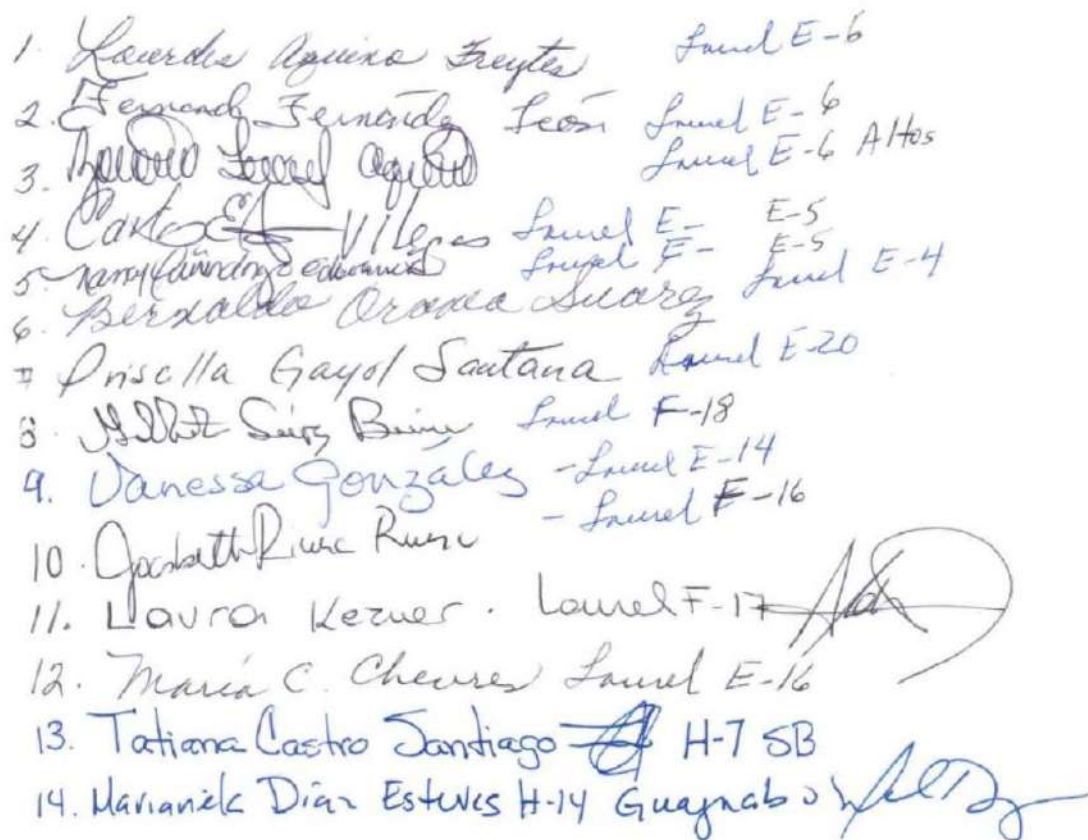 1. Lourdes Aquino Freytes Laurel E-6
2. Fernando Fernández León Laurel E-6
3. Laurel E-6 Altos
4. Carlos Villegas Laurel E- E-5
5. Laurel E- E-5
6. Bernaldo Suarez Laurel E-4
7 Priscilla Gayol Santana Laurel E-20
8. Laurel F-18
9. Vanessa González - Laurel E-14
10. - Laurel F-16
11. Laura Kezner. Laurel F-17
12. María C. Cheures Laurel E-16
13. Tatiana Castro Santiago H-7 SB
14. Marianela Díaz Esteves H-14 Guaynabo